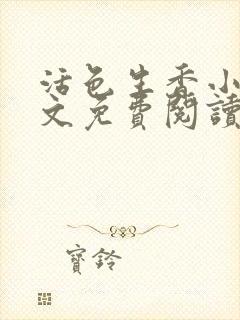 活色生香小
文免費閱讀
寶鈴